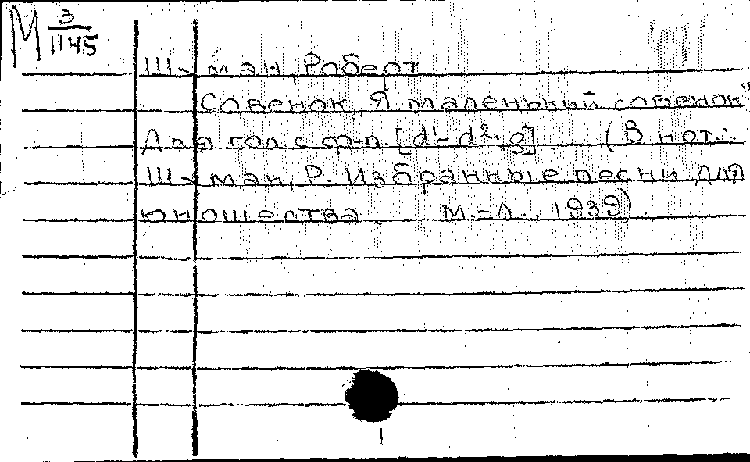 М 3/1145
Шуман, Роберт
Совенок „Я маленький совенок"
Для гол. с ф-п [d¹-d²; g] (В нот.:
Шуман, Р. Избранные песни для
юношества М.-Л., 1939).